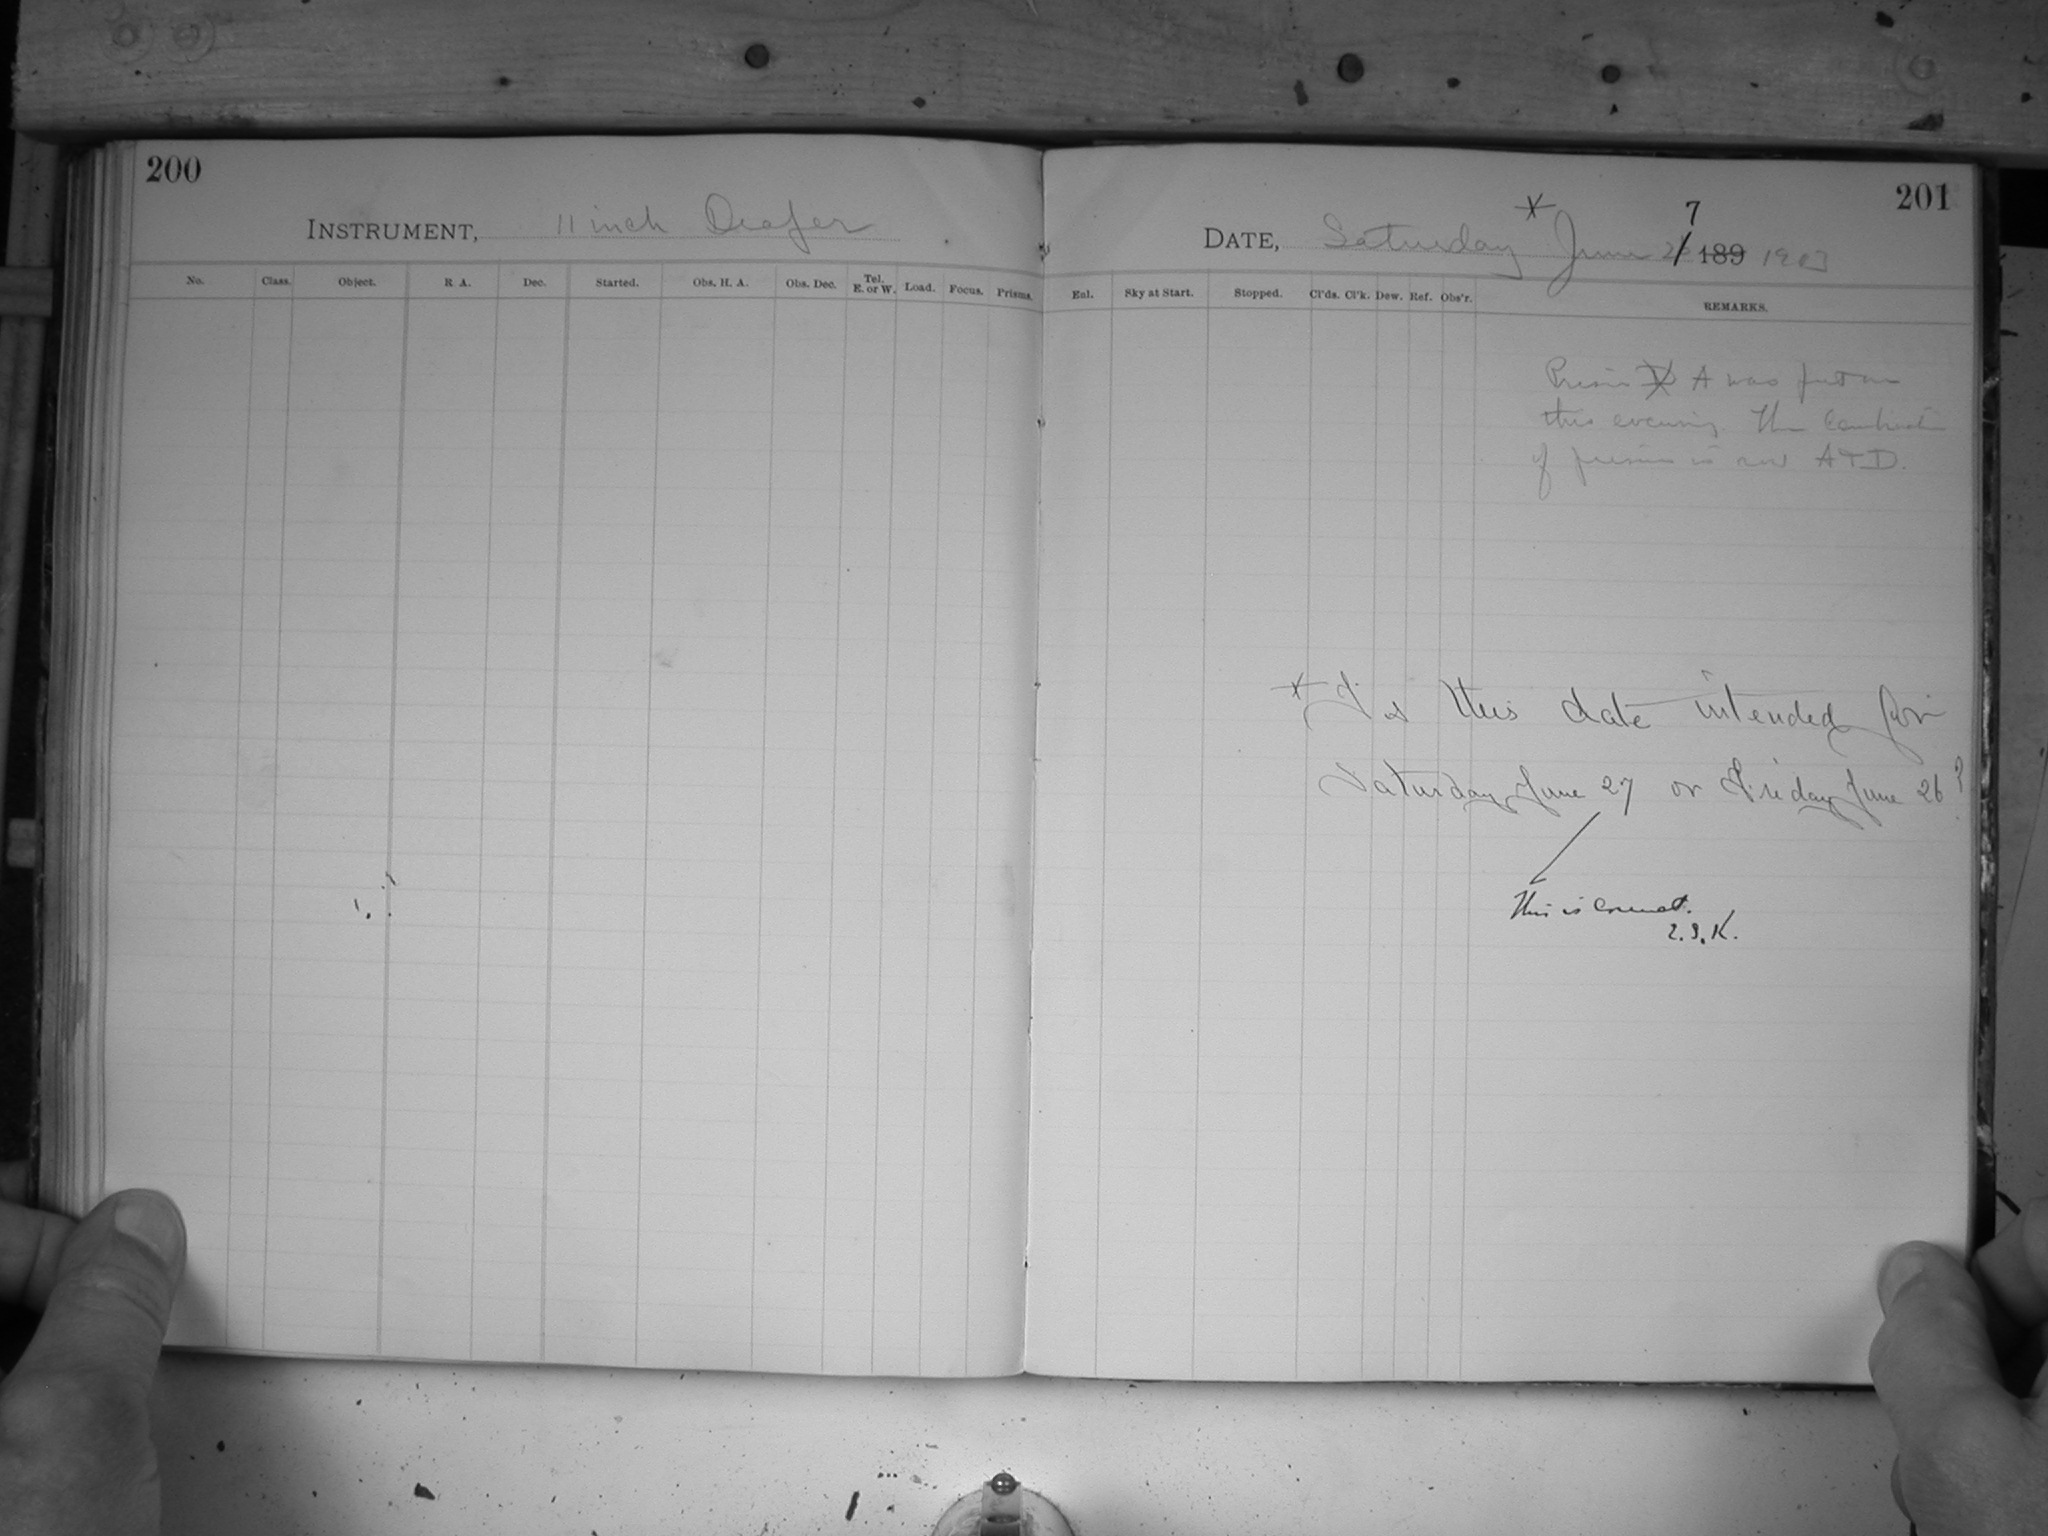 200
INSTRUMENT, 11 inch Draper
No. Class. Object. R A. Dec. Started. Obs. H. A. Obs. Dec. Tel. E. or W. Load. Focus. Prisms.
201
DATE, Saturday * June 2 7 189 1903
Enl. Sky at Start. Stopped. Cl'ds. Cl'k. Dew. Ref. Obs'r. REMARKS.
Prism A was put on
this evening. The
of prisms is now A + D.
* Is this date intended for
Saturday June 27 or Friday June 26?
This is correct.
K.